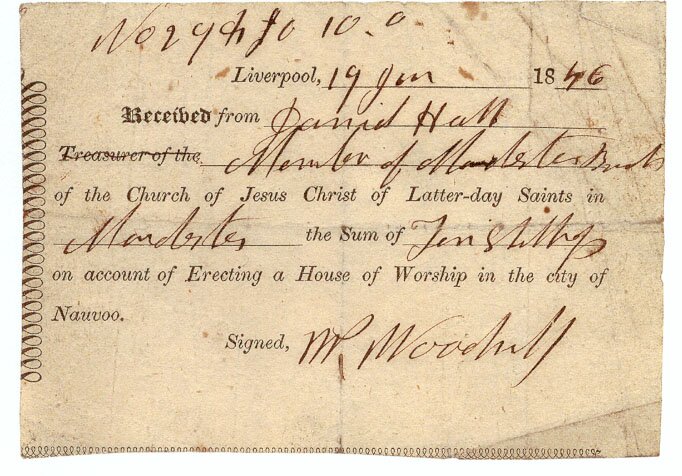 No 294 £0 10.0
Liverpool, 19 Jan 1846
Received from David Hall
Treasurer of the Member of Manchester Branch
of the Church of Jesus Christ of Latter-day Saints in
Manchester the Sum of Ten Shillings
on account of Erecting a House of Worship in the city of
Nauvoo.
Signed,